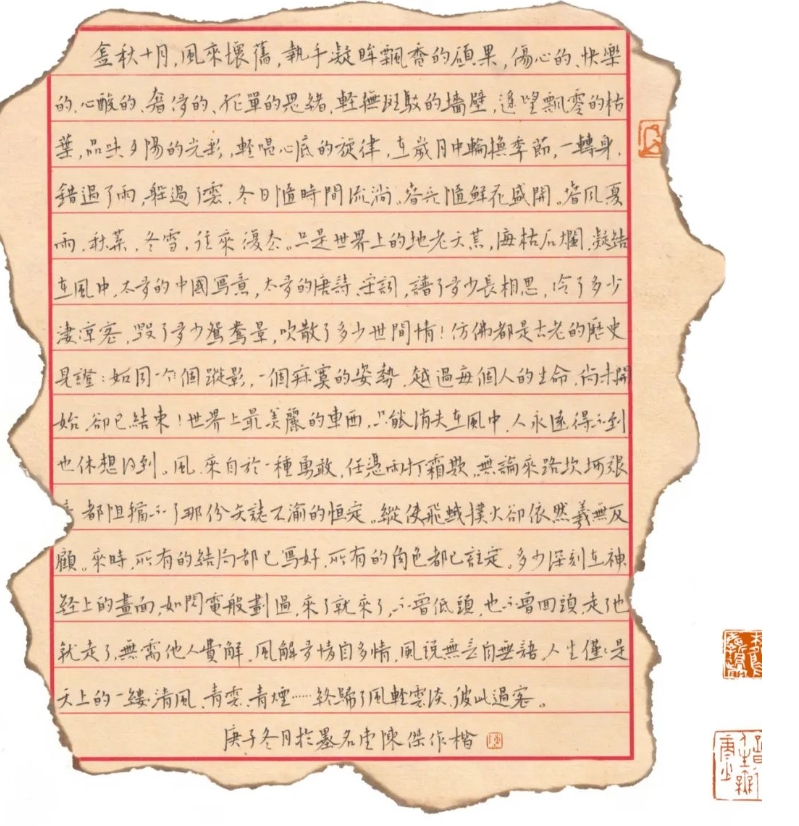 金秋十月，風來壞舊，執手凝眸飄香的碩果，傷心的、快樂
的、心酸的、奢侈的、孤單的思緒，輕撫斑駁的墻壁，遙望飄零的枯
葉，品味夕陽的光彩，輕唱心底的旋律，在歲月中輪換季節，一轉身，
錯過了雨，躲過了雲，冬日隨時間流淌。春光隨鮮花盛開。春風夏
雨，秋葉、冬雪，往來復去。只是世界上的地老天荒，海枯石爛，凝結
在風中，太多的中國寫意，太多的唐詩、宋詞，讀了多少長相思，冷了多少
淒涼客，毀了多少鴛鴦景，吹散了多少世間情！仿佛都是古老的歷史
見證：如同一个個蹤影，一個寂寞的姿勢，越過每個人的生命，尚未開
始，卻已結束！世界上最美麗的東西，只能消失在風中，人永遠得不到
也休想得到。風，來自於一種勇敢，任憑雨打霜欺。無論來路坎坷張
都阻擋不了那份矢誌不渝的恒定。縱使飛蛾撲火卻依然義無反
顧。來時，所有的結局都已寫好，所有的角色都已註定。多少深刻在神
經上的畫面，如閃電般劃過，來了就來了，不曾低頭，也不曾回頭，走了也
就走了，無需他人費解，風解多情自多情，風說無言自無語，人生僅僅是
天上的一縷清風、青雲、青煙……終歸了風輕雲淡，彼此過客。
庚子冬月於墨名堂陳傑作楷